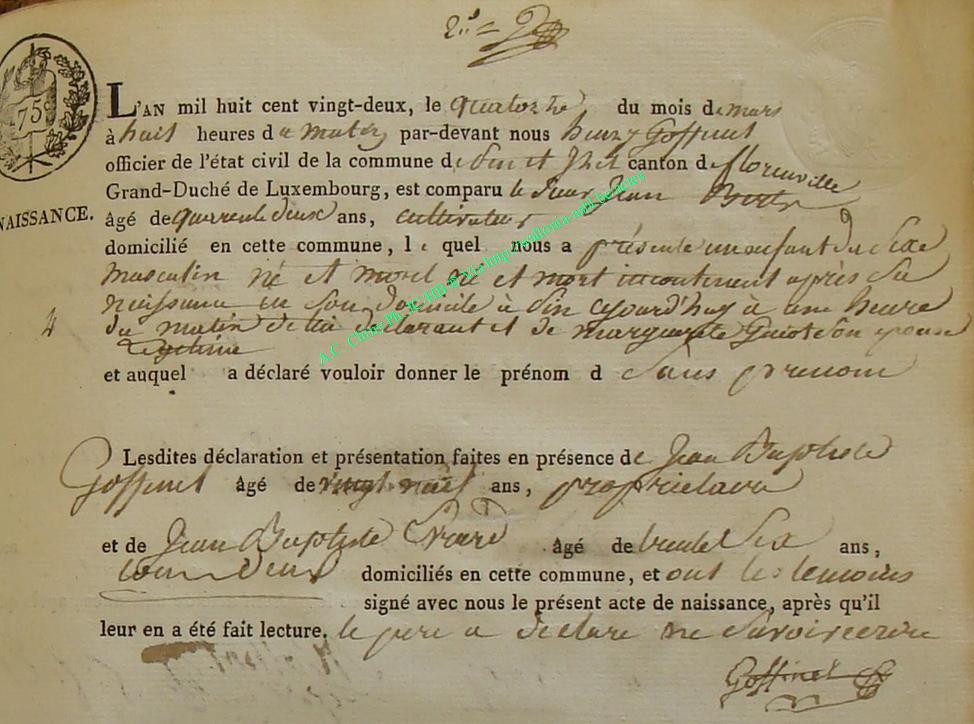 75c
L'AN mil huit cent vingt-deux, le quatorze du mois de mars
à huit heures du matin par-devant nous henry Goffinet
officier de l'état civil de la commune de canton de florenville
Grand-Duché de Luxembourg, est comparu le Sieur Jean
NAISSANCE. âgé de quarente deux ans, cultivateur
domicilié en cette commune, le quel nous a présenté un enfant du Sexe
masculin né et mort né et mort incontinent après sa
naissance en son domicile à aujourd'huy à une heure
4 du matin de lui déclarant et de marguerite son epouse
Légitime
et auquel a déclaré vouloir donner le prénom d Sans prenom
Lesdites déclaration et présentation faites en présence de Jean Baptiste
Goffinet âgé de vingt neuf ans, proprietaire
et de Jean Baptiste âgé de trente Six ans,
domiciliés en cette commune, et ont les temoins
signé avec nous le présent acte de naissance, après qu'il
leur en a été fait lecture. le pere a declaré ne Savoir ecrire
Goffinet